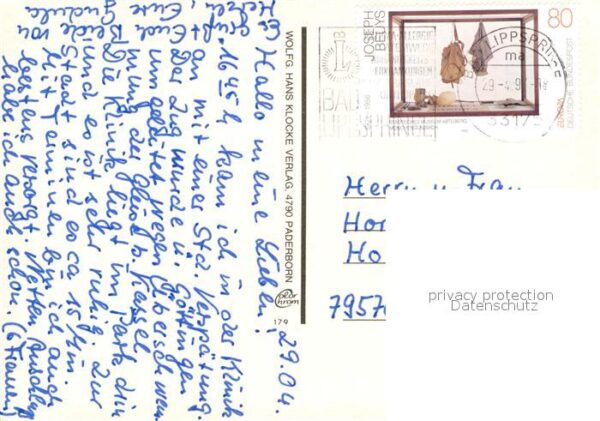 29.04.
Hallo meine Lieben!
16.45 h kam ich in der Klinik
an mit einer Std. Verspätung.
Der Zug wurde ü. Göttingen
umgeleitet wegen Überschwem
mung der Gleise b. Kassel.
Die Klinik liegt im Park drin
und es ist sehr ruhig. Zur
Stadt sind es ca 15 Min.
Mit Terminen bin ich auch
bestens versorgt. Netten Anschluß
habe ich auch schon. (6 Frauen)
Herzl.
Euch
Beide von
Gudula
WOLFG. HANS KLOCKE VERLAG, 4790 PADERBORN
179
JOSEPH BEUYS
80
DEUTSCHE BUNDESPOST
EUROPA
LIPPSPRINGE
ma
33175
L
BAD
LIPPSPRINGE
Herrn u. Frau
Hor
Ho
7957
privacy protection
Datenschutz